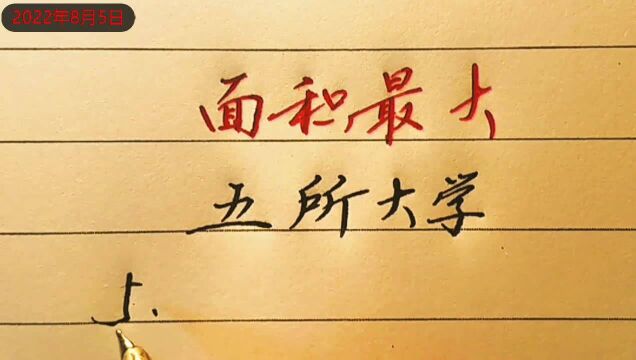 2022年8月5日
面积最大
五所大学
5.